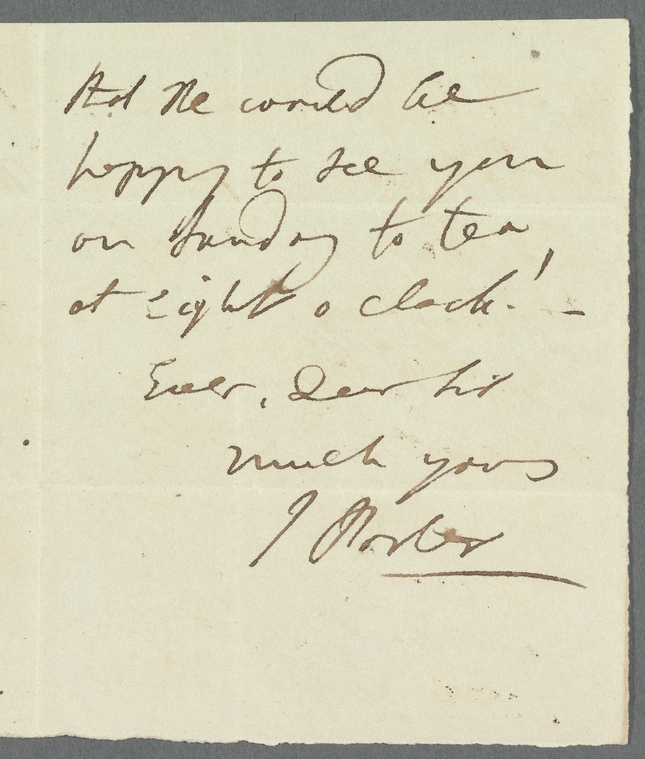 that we could be
happy to see you
on Sunday to tea,
at eight o clock! –
Ever, Dear Sir
much yours
J Porter